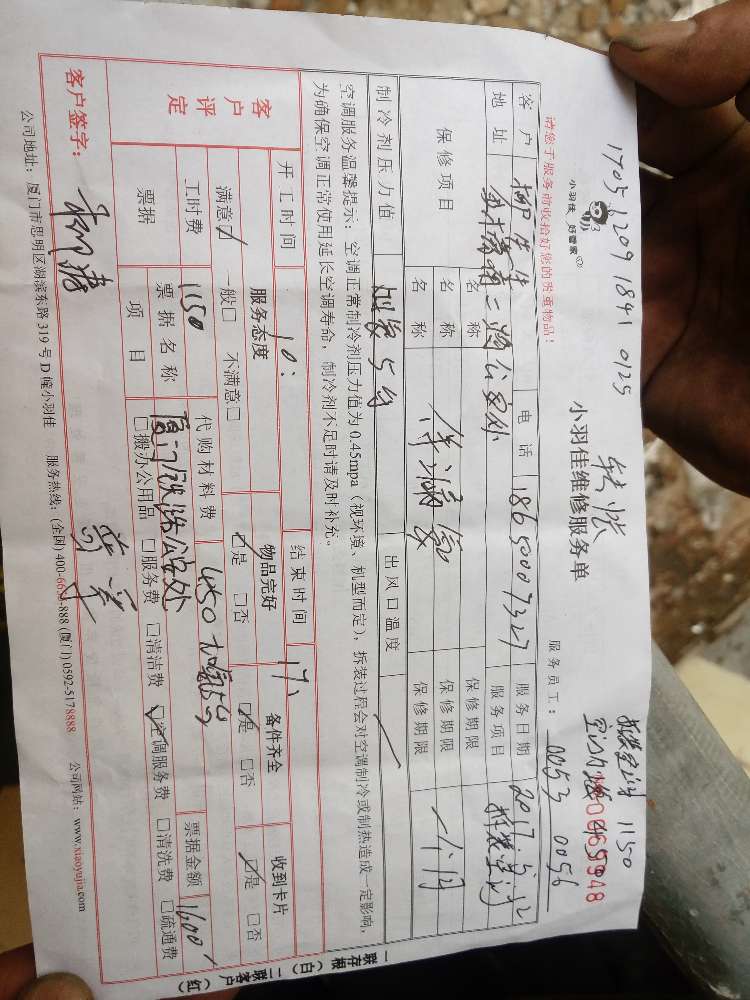 1705 1209 1841 0125
转账
拆装空调 1150
小羽佳 好管家
小羽佳维修服务单
服务员工： 0053 0056
请您于服务前收拾好您的贵重物品！
客户 柳先生 电话 18650007327 服务日期 2017.5.12
地址 服务项目 拆装空调
保修项目 名称 保修期限
名称 保修期限 一个月
名称 保修期限
制冷剂压力值 加氨5台 出风口温度
空调服务温馨提示：空调正常制冷剂压力值为0.45mpa（视环境、机型而定），拆装过程会对空调制冷或制热造成一定影响，
为确保空调正常使用延长空调寿命，制冷剂不足时请及时补充。
客户评定
开工时间 10: 结束时间 17:
服务态度 物品完好 备件齐全 收到卡片
满意☑ 一般□ 不满意□ ☑是 □否 ☑是 □否 ☑是 □否
工时费 1150 代购材料费 450 加氨5台 票据金额 1600
票据 票据名称
项目 □搬办公用品 □服务费 □清洁费 ☑空调服务费 □清洗费 □疏通费
客户签字：
公司地址：厦门市思明区湖滨东路319号D幢小羽佳 服务热线：(全国) 400-6633-888 (厦门) 0592-5178888 公司网站：www.xiaoyujia.com
一联存根（白） 二联客户（红）